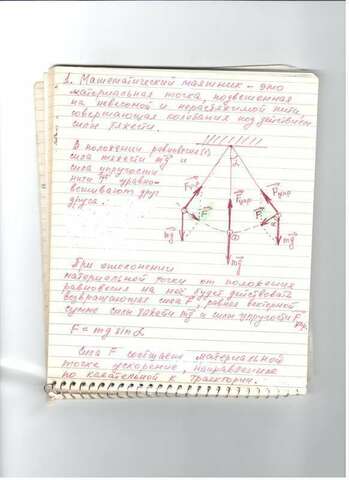 1. Математический маятник - это
материальная точка, подвешенная
на невесомой и нерастяжимой нити,
совершающая колебания под действием
силы тяжести.
В положении равновесия (т)
сила тяжести mg и
сила упругости
нити F уравно-
вешивают друг
друга.
Fупр
Fупр
Fупр
F
F
α
mg
mg
mg
При отклонении
материальной точки от положения
равновесия на неё будет действовать
возвращающая сила F, равная векторной
сумме силы тяжести mg и силы упругости F
упр.
F = mg sin α
Сила F сообщает материальной
точке ускорение, направленное
по касательной к траектории.